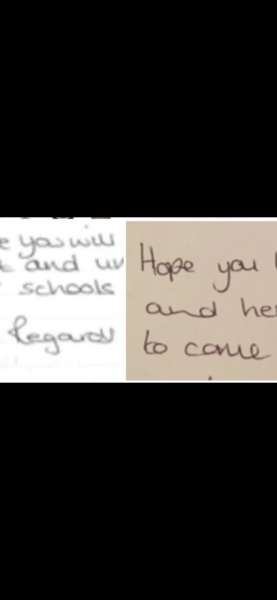 e you will
and
schools
Regards
Hope you
and he
to come